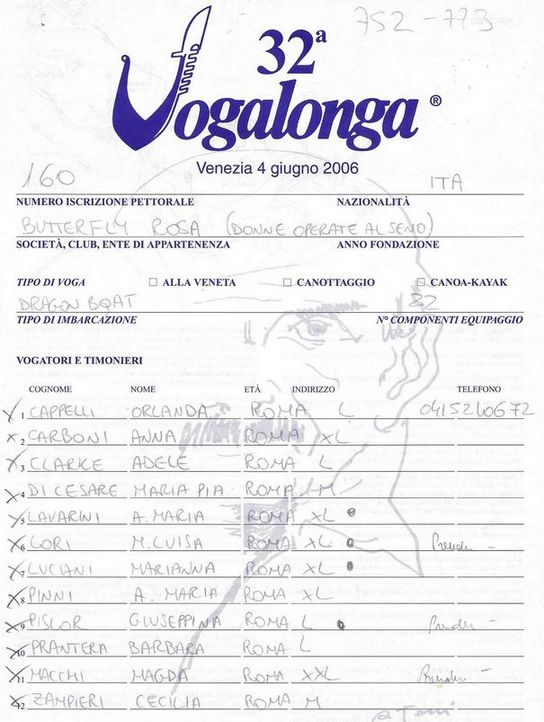 752-773
32ª
Vogalonga ®
Venezia 4 giugno 2006
160 ITA
NUMERO ISCRIZIONE PETTORALE NAZIONALITÀ
BUTTERFLY ROSA (DONNE OPERATE AL SENO)
SOCIETÀ, CLUB, ENTE DI APPARTENENZA ANNO FONDAZIONE
TIPO DI VOGA □ ALLA VENETA □ CANOTTAGGIO □ CANOA-KAYAK
DRAGON BOAT 22
TIPO DI IMBARCAZIONE N° COMPONENTI EQUIPAGGIO
VOGATORI E TIMONIERI
COGNOME NOME ETÀ INDIRIZZO TELEFONO
1 CAPPELLI ORLANDA ROMA L 0415240672
2 CARBONI ANNA ROMA XL
3 CLARKE ADELE ROMA L
4 DI CESARE MARIA PIA ROMA M
5 LAVARINI A. MARIA ROMA XL
6 LORI M. LUISA ROMA XL
7 LUCIANI MARIANNA ROMA XL
8 PINNI A. MARIA ROMA XL
9 PISLOR GIUSEPPINA ROMA L
10 PRANTERA BARBARA ROMA L
11 MACCHI MAGDA ROMA XXL
12 ZAMPIERI CECILIA ROMA M